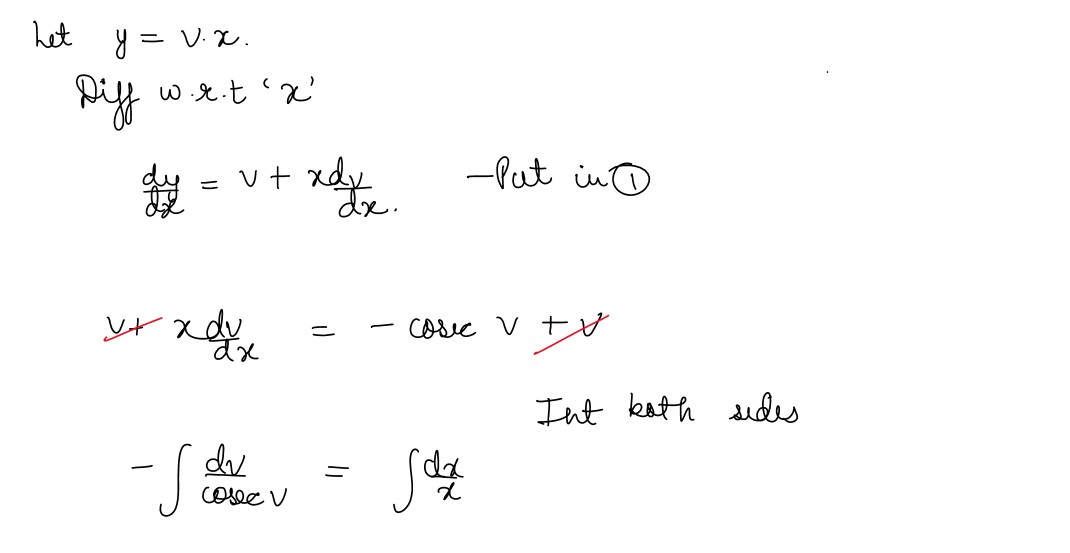 Let y = v·x.
Diff w.r.t 'x'
dy/dx = v + x dv/dx. - Put in ①
v + x dv/dx = - cosec v + v
Int both sides
- ∫ dv/cosec v = ∫ dx/x